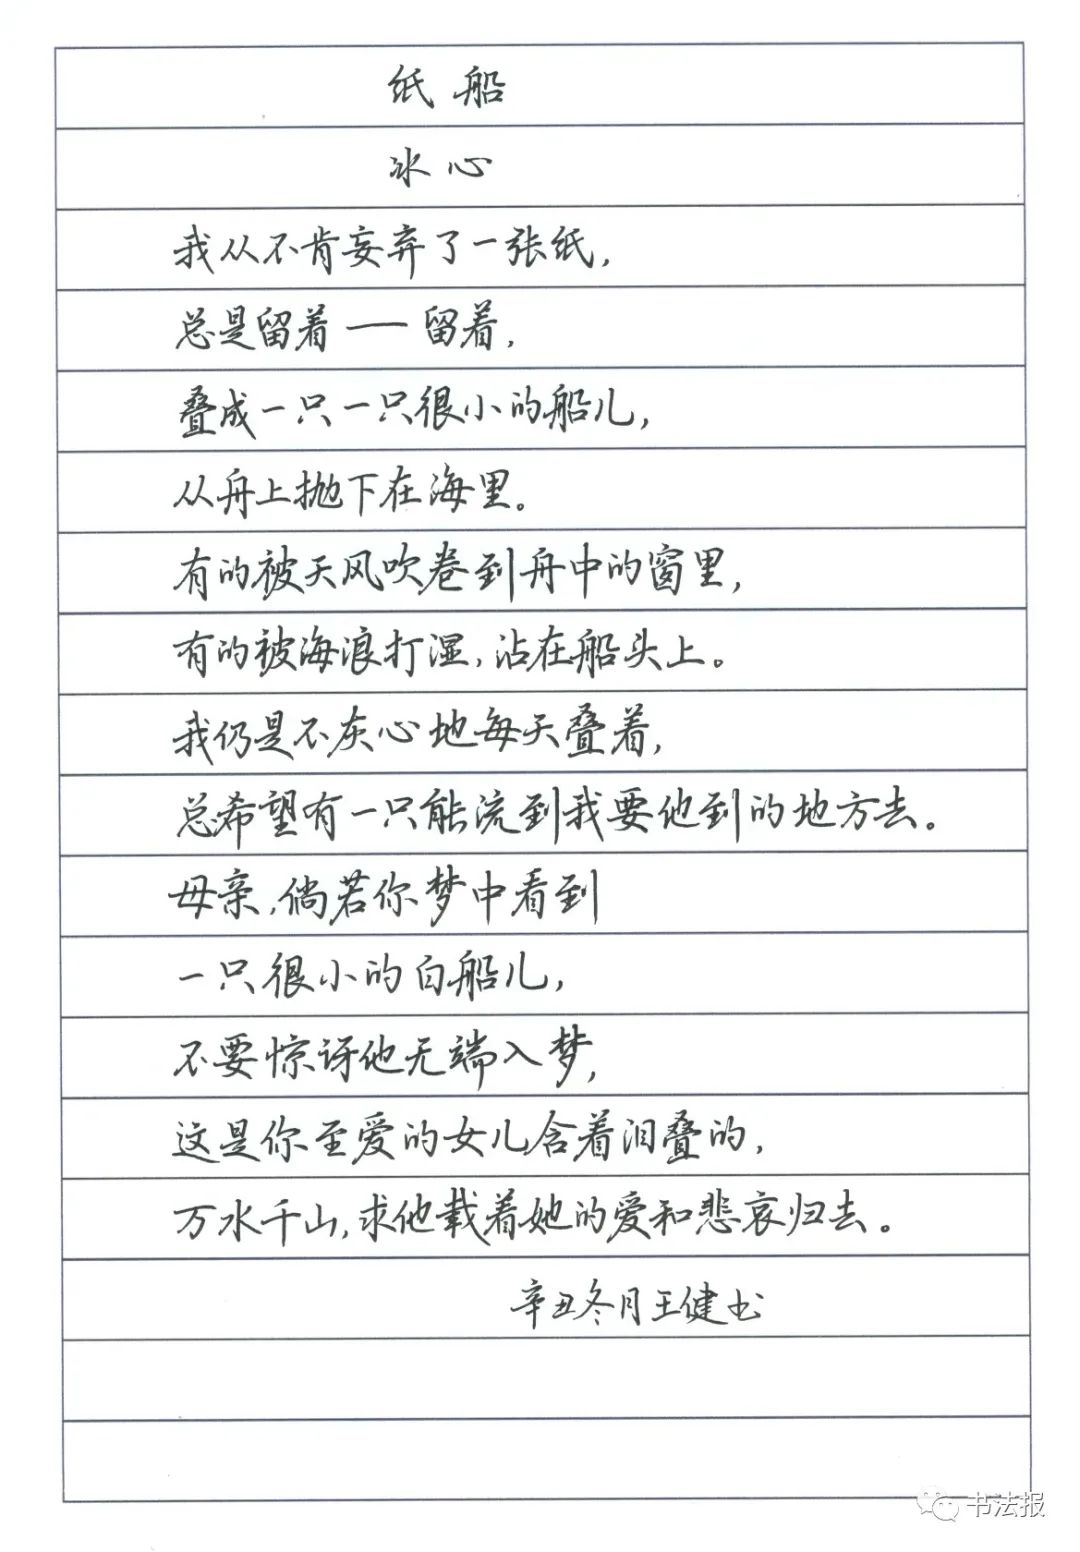 纸船
冰心
我从不肯妄弃了一张纸,
总是留着——留着,
叠成一只一只很小的船儿,
从舟上抛下在海里。
有的被天风吹卷到舟中的窗里,
有的被海浪打湿,沾在船头上。
我仍是不灰心地每天叠着,
总希望有一只能流到我要他到的地方去。
母亲,倘若你梦中看到
一只很小的白船儿,
不要惊讶他无端入梦,
这是你至爱的女儿含着泪叠的,
万水千山,求他载着她的爱和悲哀归去。
辛丑冬月王健书
书法报